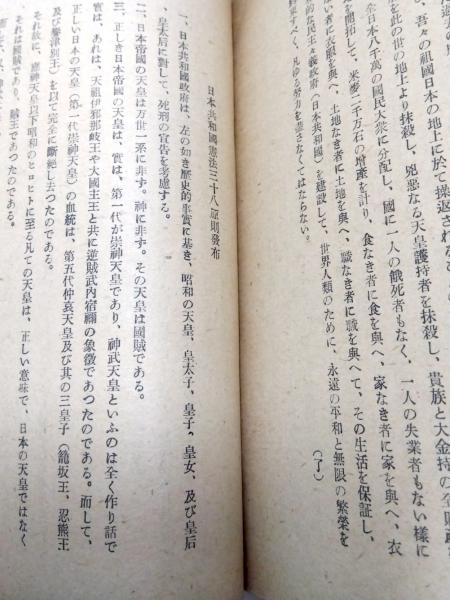 吾々の祖國日本の地上に於て操返される
を此の世の地上より抹殺し、兇惡なる天皇護持者を抹殺し、貴族と大金持の全財產を
全日本八千萬の國民大衆に分配し、國に一人の餓死者もなく、一人の失業者もない様に
を開拓して、米麥二千万石の增產を計り、食なき者に食を與へ、家なき者に家を與へ、衣
なき者に衣を與へ、土地なき者に土地を與へ、職なき者に職を與へて、その生活を保証し、
的な民主々義政府(日本共和國)を建設して、世界人類のために、永遠の平和と無限の繁榮を
すべく、凡ゆる努力を盡さなくてはならない。
(了)
日本共和國憲法三十八原則發布
一、日本共和國政府は、左の如き歷史的事實に基き、昭和の天皇、皇太子、皇子、皇女、及び皇后
皇太后に對して、死刑の宣告を考慮する。
二、日本帝國の天皇は万世一系に非ず。神に非ず。その天皇は國賊である。
三、正しき日本帝國の天皇は、實は、第一代が崇神天皇であり、神武天皇といふのは全く作り話で
實は、あれは、天祖伊邪那岐王や大國主王と共に逆賊武内宿禰の象徵であつたのである。而して、
正しい日本の天皇(第一代崇神天皇)の血統は、第五代仲哀天皇及び其の三皇子(籠坂王、忍熊王
及び譽津別王)を以て完全に斷絕し去つたのである。
それ故に、應神天皇以下昭和のヒロヒトに至る凡ての天皇は、正しい意味で、日本の天皇ではなく
それは國賊であり、賊王であつたのである。